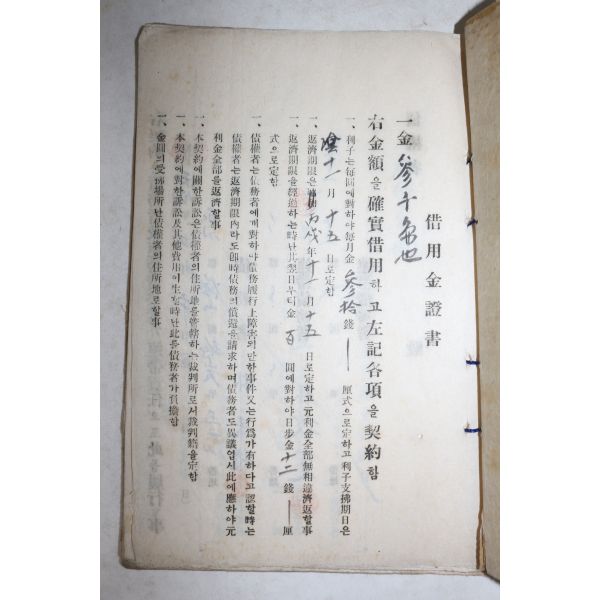 借用金證書
一金參千圓也
右金額을確實借用하고左記各項을契約함
一、利子는每圓에對하야每月金參拾錢—厘式으로定하고利子支拂期日은
陰十一月十五日로定함
一、返濟期限은丙戌年十一月十五日로定하고元利金全部無相違濟返할事
一、返濟期限을經過하는時난其翌日부터金百圓에對하야日步金十二錢—厘
式으로定함
一、債權者는債務者에게對하야債務履行上障害의만한事件又는行爲가有하다고認할時는
債權者는返濟期限內라도卽時債務의償還을請求하며債務者도異議업시此에應하야元
利金全部를返濟할事
一、本契約에關한訴訟은債權者의住所地를管轄하는裁判所로서裁判籍을定함
一、本契約에對한訴訟及其他費用이生할時난此를債務者가負擔함
一、金圓의受渡場所난債權者의住所地로할事